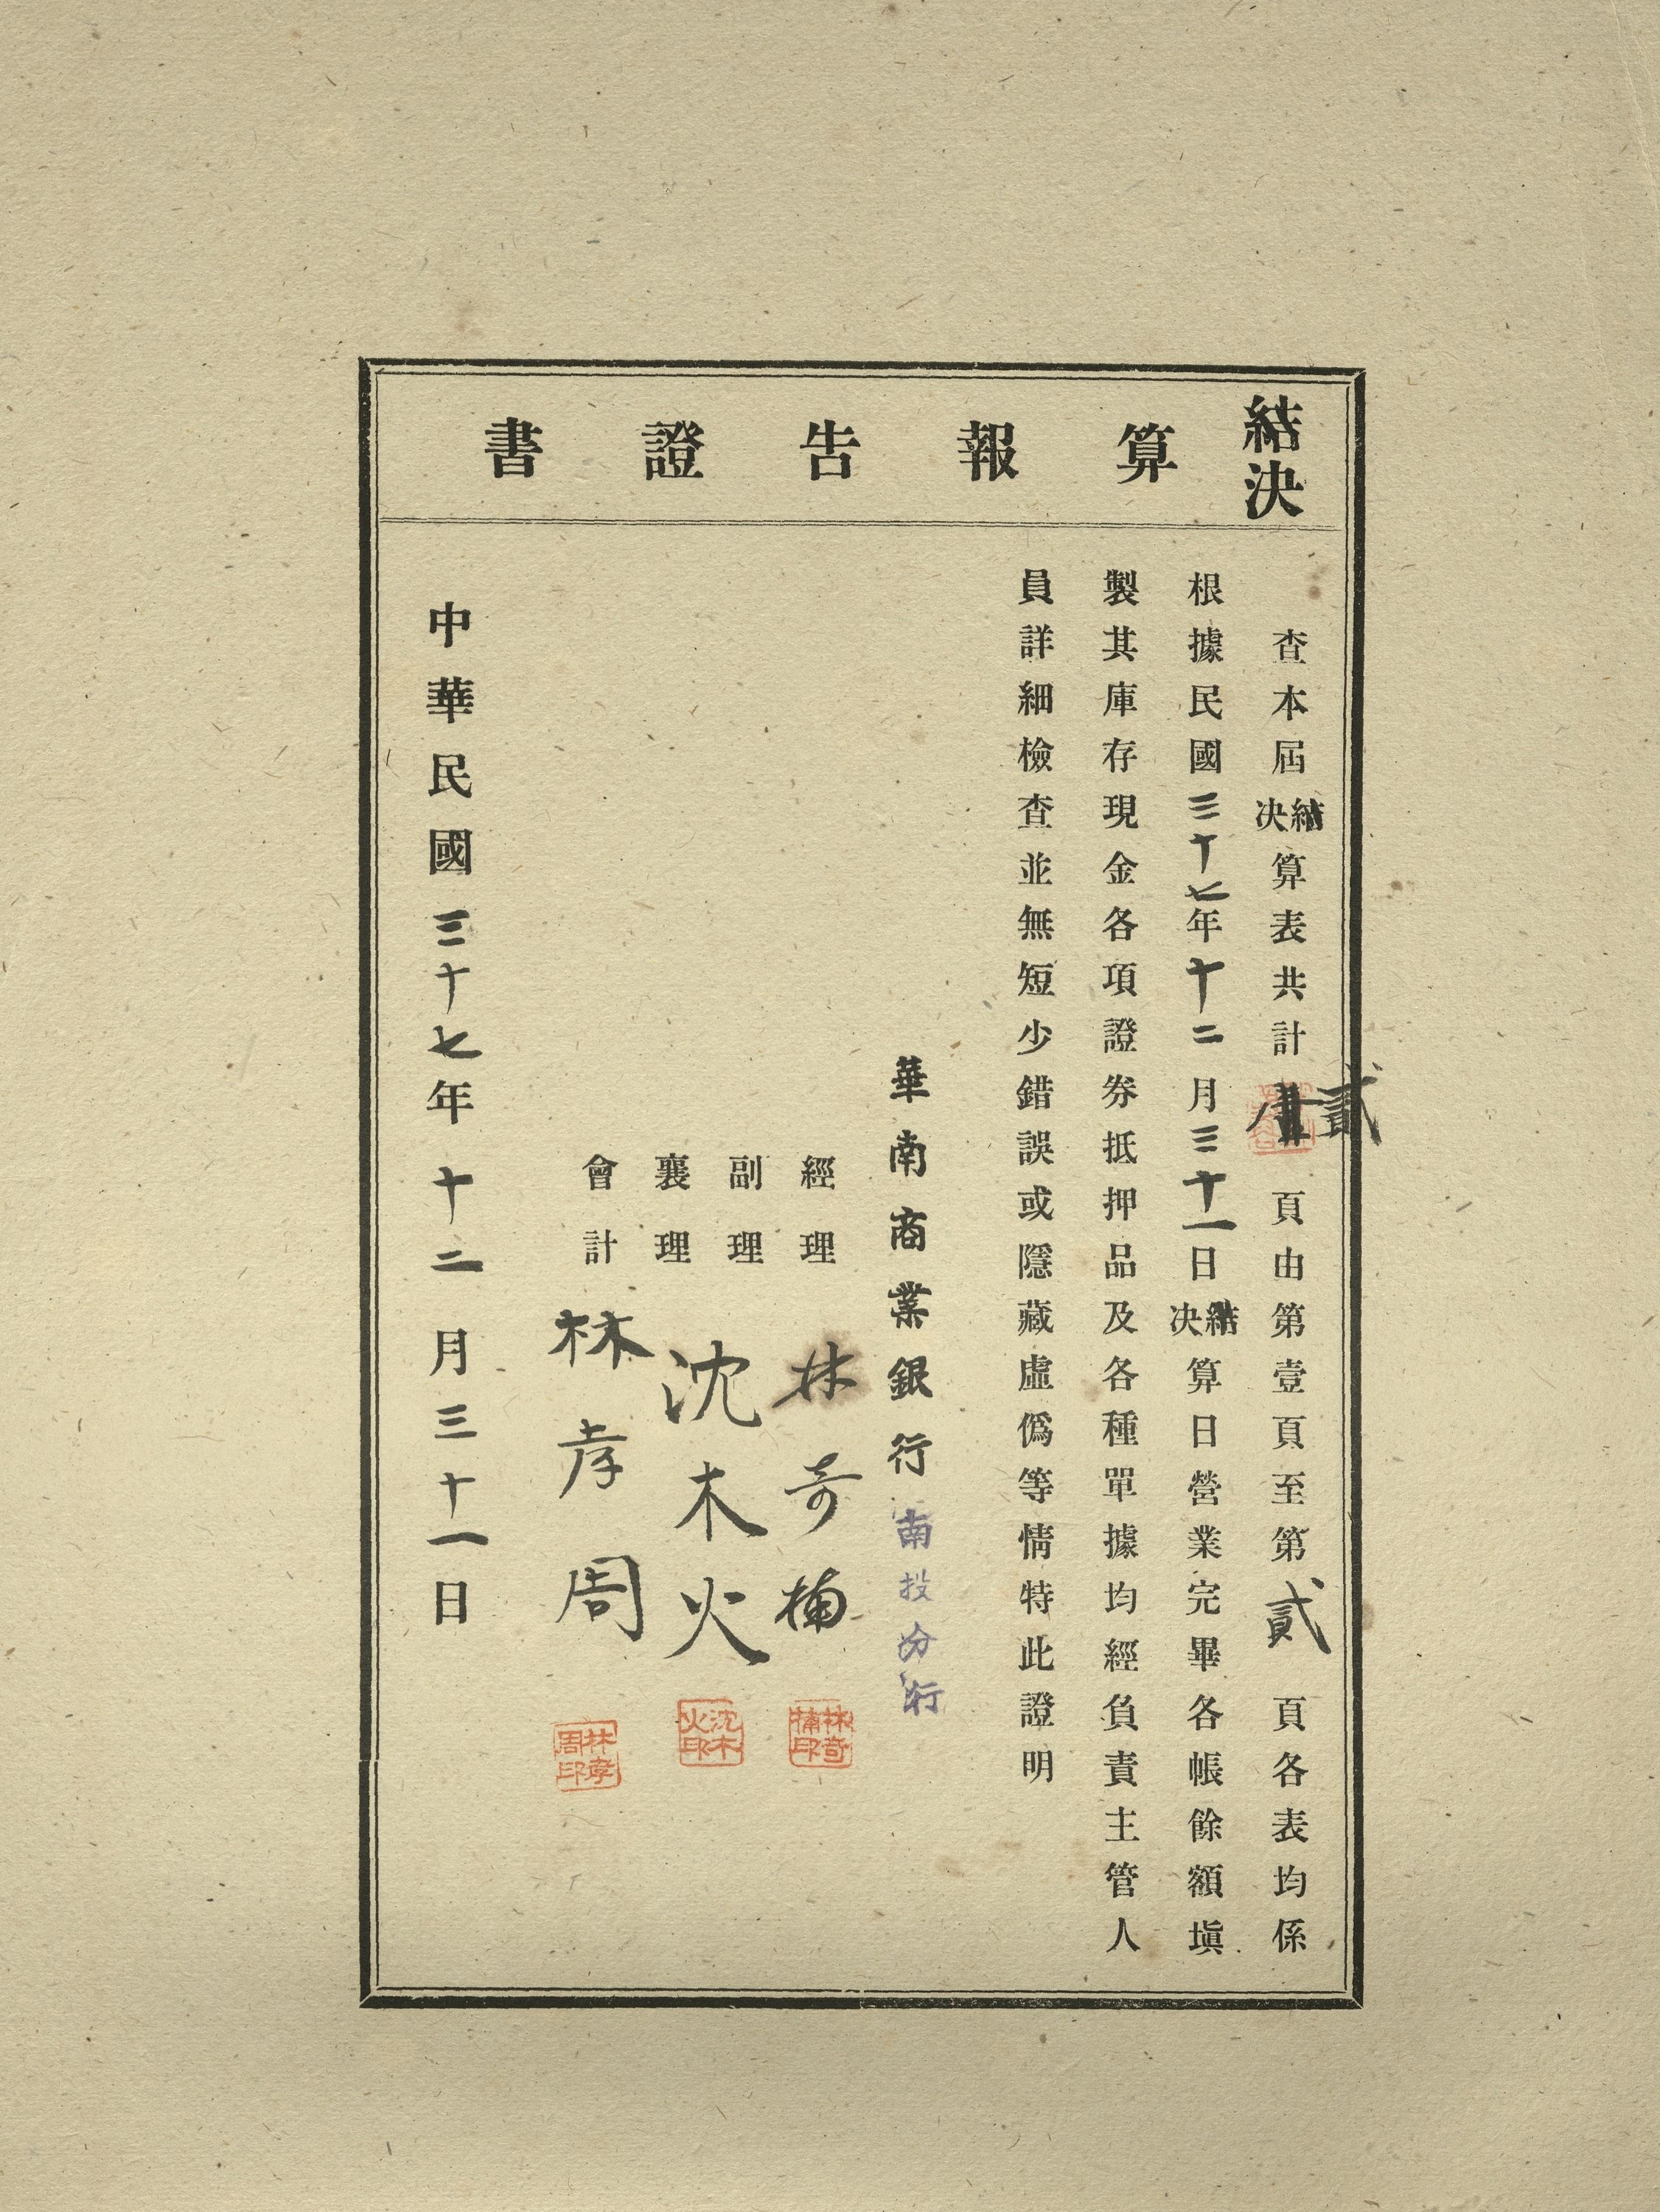 結決算報告證書
查本屆結決算表共計貳頁由第壹頁至第貳頁各表均係
根據民國三十七年十二月三十一日結決算日營業完畢各帳餘額塡
製其庫存現金各項證券抵押品及各種單據均經負責主管人
員詳細檢查並無短少錯誤或隱藏虛僞等情特此證明
華南商業銀行南投分行
經理 林奇楠 林奇楠印
副理
襄理 沈木火 沈木火印
會計 林孝周 林孝周印
中華民國三十七年十二月三十一日